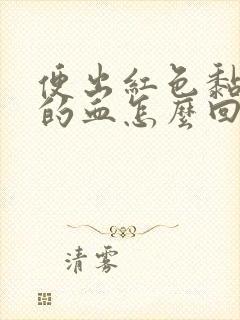 便出紅色黏
的血怎麼回
清雾